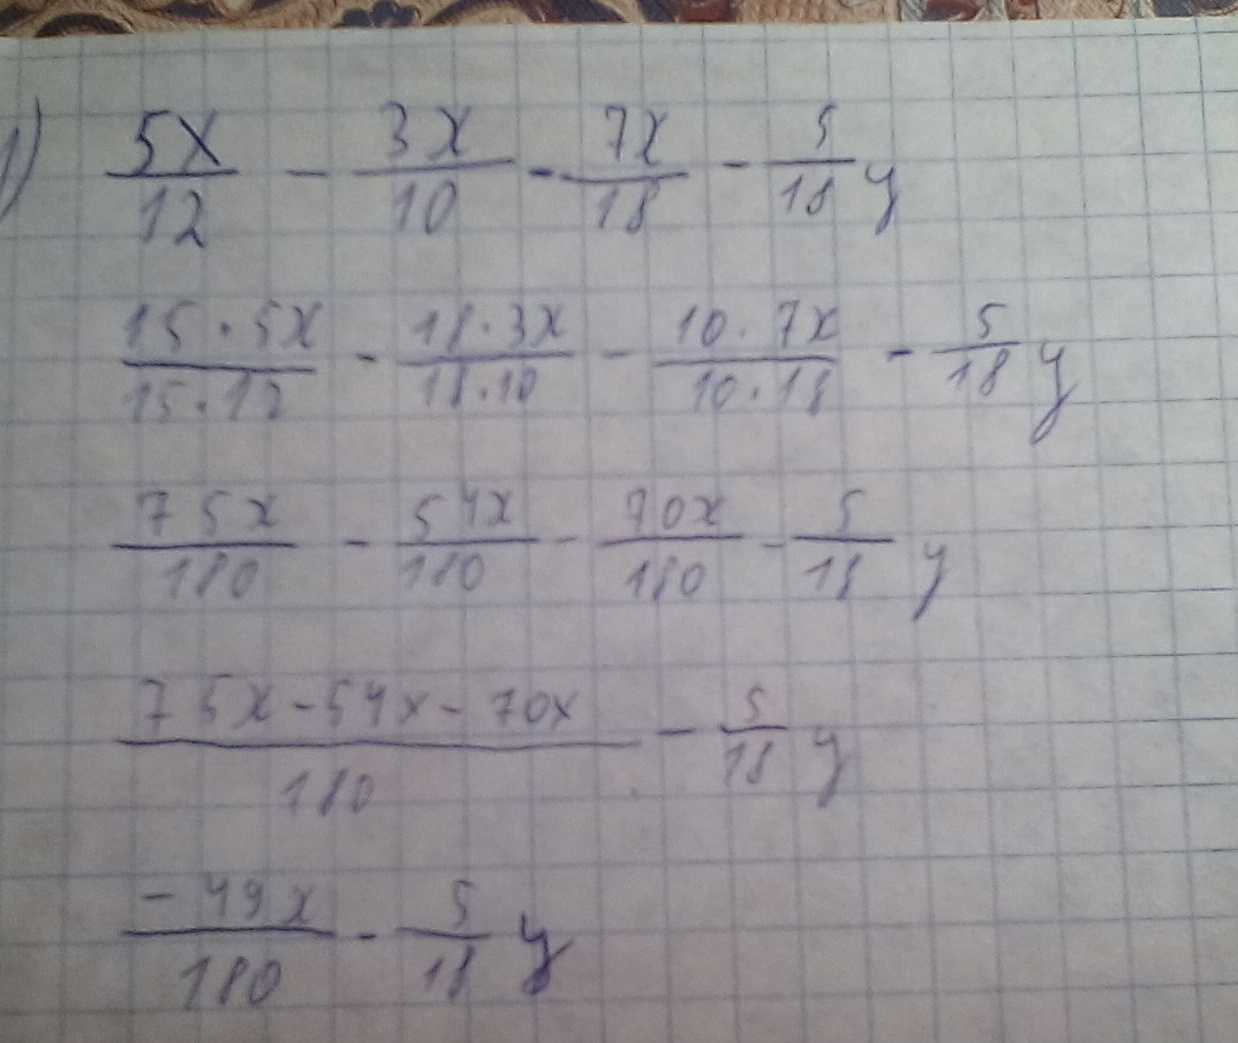 1) 5x/12 - 3x/10 - 7x/18 - 5/18 y
15·5x/15·12 - 18·3x/18·10 - 10·7x/10·18 - 5/18 y
75x/180 - 54x/180 - 70x/180 - 5/18 y
75x-54x-70x/180 - 5/18 y
-49x/180 - 5/18 y